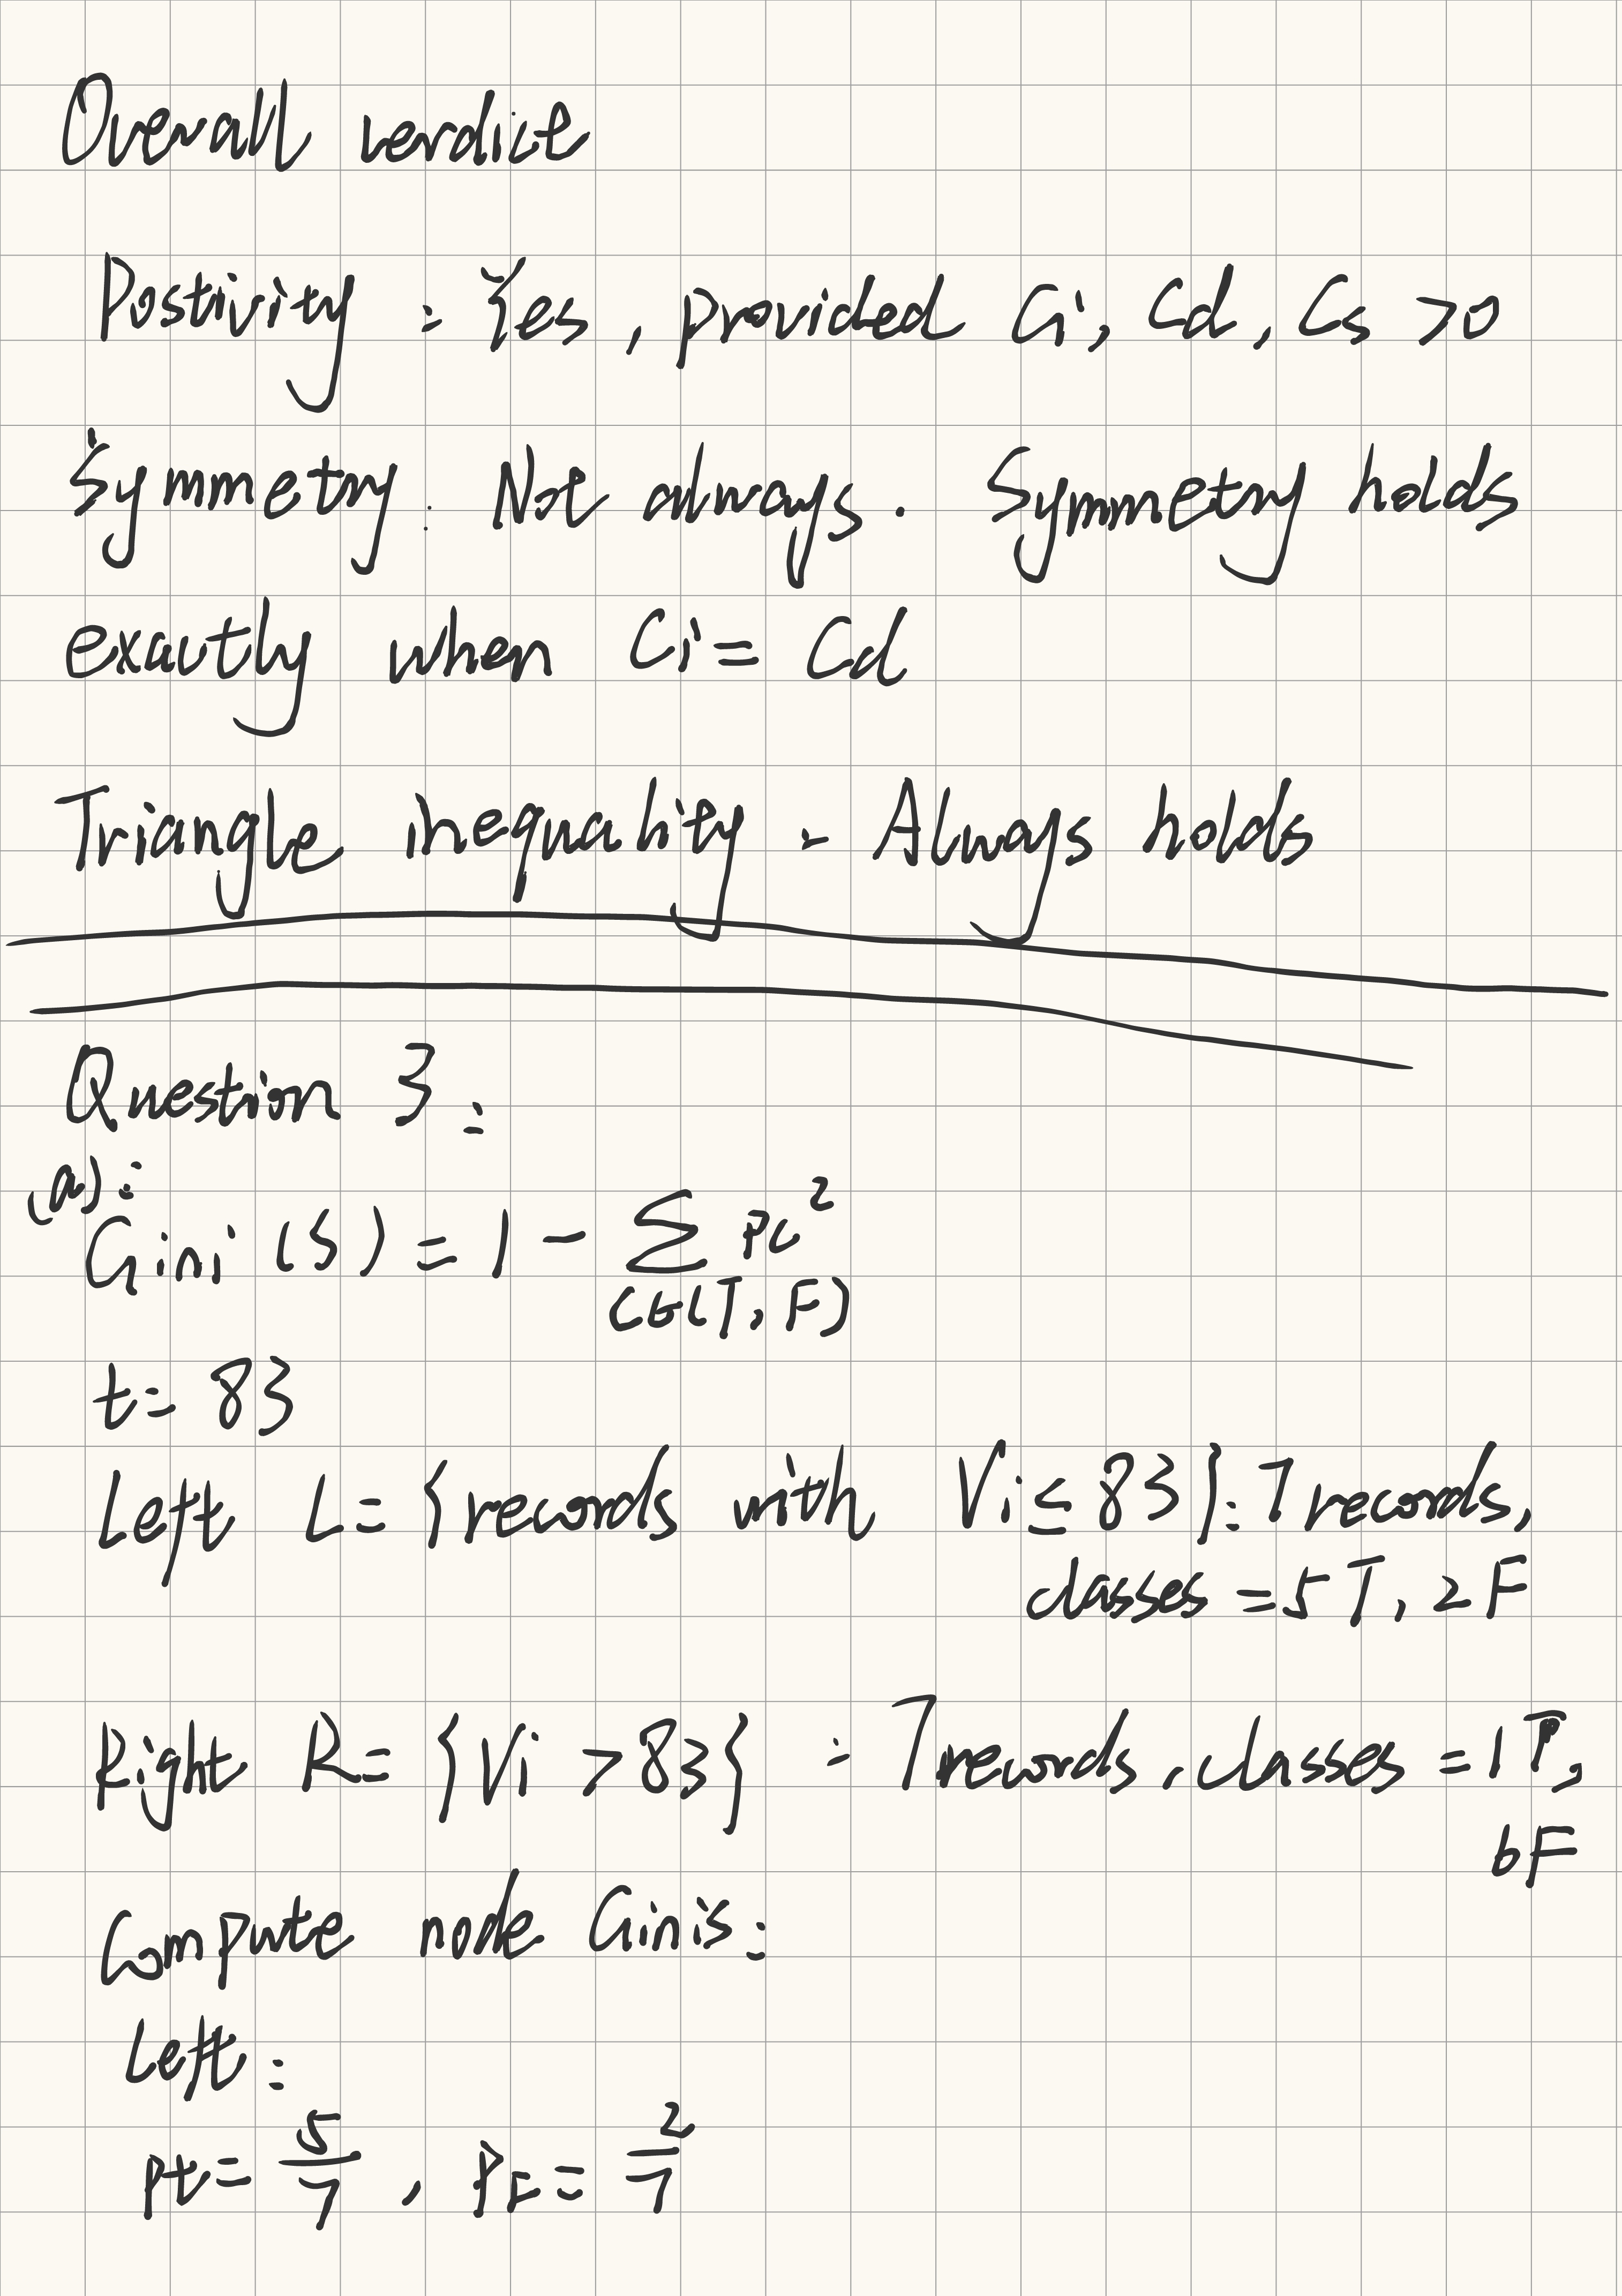 Overall verdict
Postivity : Yes, provided Ci, Cd, Cs >0
Symmetry : Not always. Symmetry holds
exactly when Ci = Cd
Triangle inequality : Always holds
Question 3 :
(a) :
Gini (S) = 1 - ∑ pc²
c∈(T, F)
t = 83
Left L = {records with Vi ≤ 83} : 7 records,
classes = 5T, 2F
Right R = {Vi > 83} : 7 records, classes = 1T,
6F
Compute node Ginis :
Left :
pt = 5/7, pF = 2/7